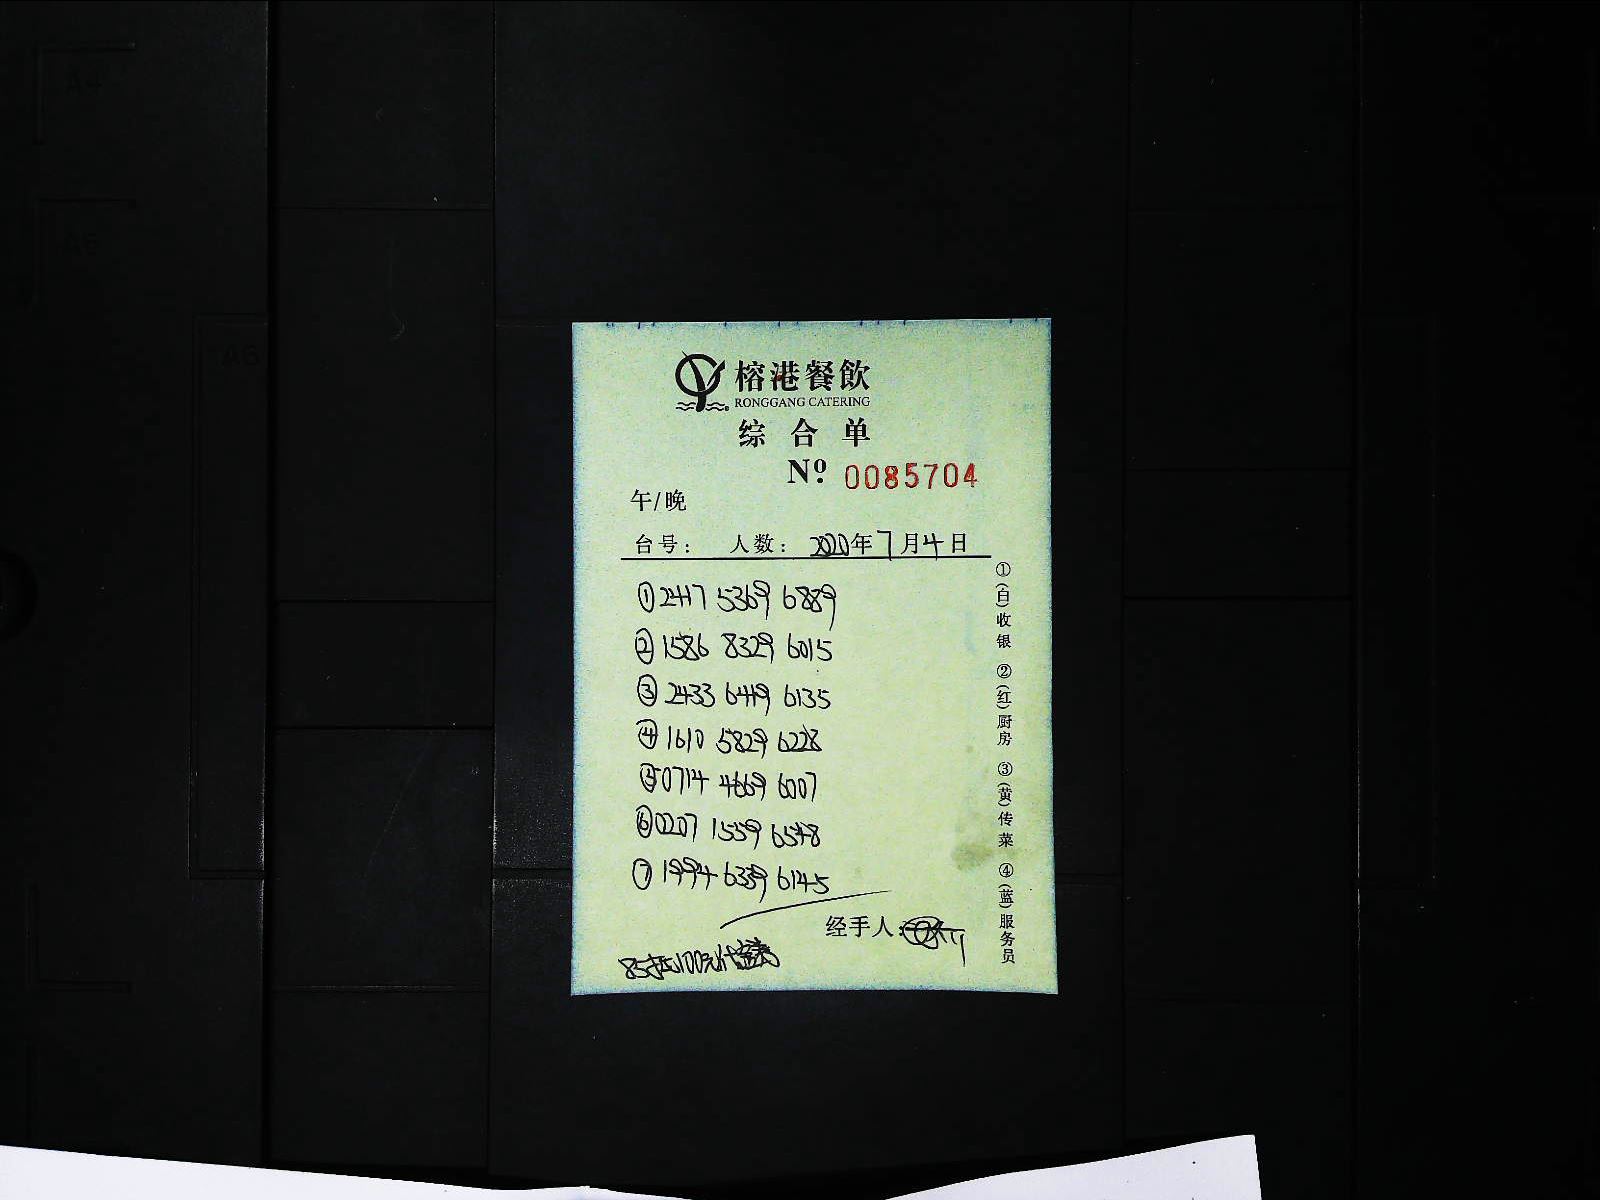 榕港餐飲
RONGGANG CATERING
综合单
Nº 0085704
午/晚
台号： 人数： 2020年7月4日
①2417 5369 6889
②1586 8329 6015
③2433 6419 6135
④1610 5829 6228
⑤0714 4669 6007
⑥0207 1559 6548
⑦1994 6339 6145
经手人：
85抵100元代金券
①(白)收银 ②(红)厨房 ③(黄)传菜 ④(蓝)服务员
A4
A5
A6